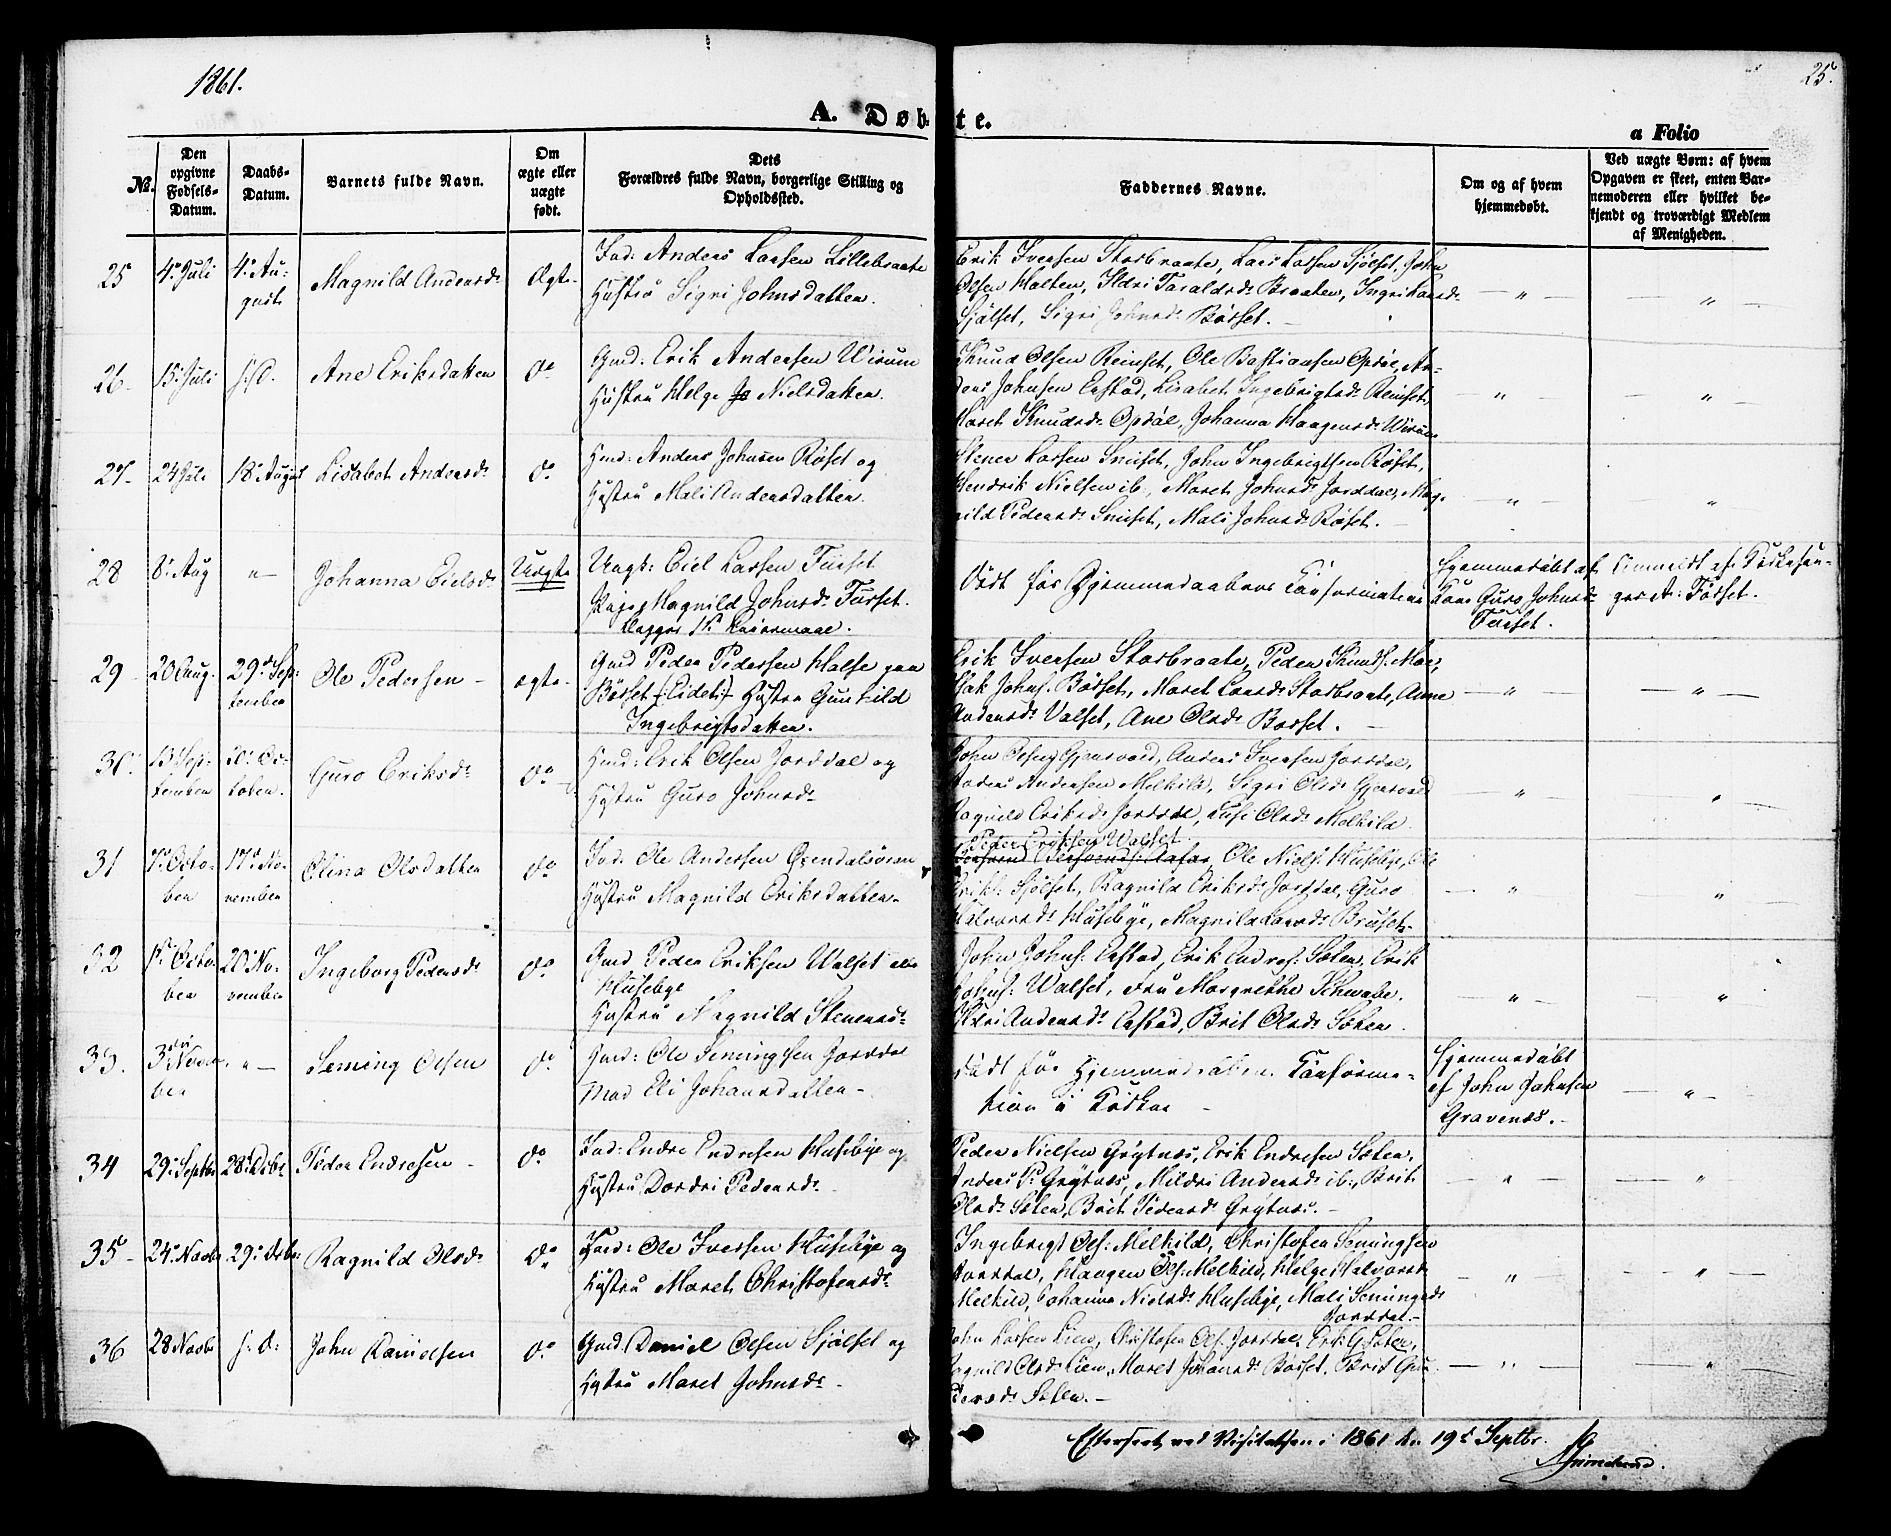 1861.
25.
A. Døbte.
a Folio
No.
Den opgivne Fødsels-Datum.
Daabs-Datum.
Barnets fulde Navn.
Om ægte eller uægte født.
Dets Forældres fulde Navn, borgerlige Stilling og Opholdssted.
Faddernes Navne.
Om og af hvem hjemmedøbt.
Ved uægte Børn: af hvem Opgaven er skeet, enten Barnemoderen eller hvilket bekjendt og troværdigt Medlem af Menigheden.
25 4de Juli 4de August Magnild Andersd. Ægte
Ind: Anders Larsen Lillebraate
Hustru Sigri Johnsdatter.
Erik Iversen Storbraate, Lars Larsen Sjølset, John
Olsen Halten, Ildri Taraldsd. Braaten, Ingri Larsd.
Sjølset, Sigri Johnsd. Børset.
26 15. Juli s. D. Ane Eriksdatter do
Gmd: Erik Andersen Wirum
Hustru Helge Nielsdatter.
Knud Olsen Reinset, Ole Bastiansen Opdøl, An-
ders Johnsen Eestad, Lisabet Ingebrigtsd. Reinset,
Maret Knudsd. Opdøl, Johanna Haagensd. Wirum
27 24 Juli 18. August Lisabet Andersd. do
Hmd: Anders Johnsen Røset og
Hustru Mali Andersdatter.
Stener Larsen Sniset, John Ingebrigtsen Røset,
Hendrik Nielsen ib., Maret Johnsd. Jorddal, Mag-
nild Pedersd. Sniset, Mali Johnsd. Røset.
28 8. Aug " Johanna Eielsd. Uægte
Ungk: Eiel Larsen Furset
Pige Magnild Johnsd. Furset.
Begges 1ste Leiermaal.
Død før Hjemmedaabens Confirmation
Hjemmedøbt af
Kone Guro Johnsd.
Furset.
Anmeldt af Kirkesan-
ger A: Furset.
29 20 Aug. 29de September Ole Pedersen ægte
Gmd Peder Pedersen Halse paa
Børset (Eidet) Hustru Gunhild
Ingebrigtsdatter.
Erik Iversen Storbraate, Peder Knuds. Moe,
Isak Johns. Børset, Maret Larsd. Storbraate, Anne
Andersd. Valset, Ane Olsd. Børset.
30. 13 September 20. October. Guro Eriksd. do
Hmd: Erik Olsen Jorddal og
Hustru Guro Johnsd.
John Olsen Gjersvold, Anders Iversen Jorddal,
Anders Andersen Melkild, Sigri Olsd. Gjersvold
Ragnild Eriksd. Jorddal, Olsd. Melkild.
31 7de October 17de November Olina Olsdatter do
Ind: Ole Andersen Oxendalsøren
Hustru Magnild Eriksdatter.
Peder Eriksen Walset
Ole Niels. Husebye, Ole
Eriks. Sjølset, Ragnild Eriksd. Jorddal, Guro
Halvorsd. Husebye, Magnild Larsd. Bruset.
32 1ste October 20de November Ingeborg Pedersd. do
Gmd Peder Eriksen Walset eller
Husebye
Hustru Magnild Stenersd.
John Johns. Eestad, Erik Endres. Sæter, Erik
Johns. Walset, Fru Margrethe Schwabe.
Ildri Andersd. Eestad, Brit Olsd. Sæter.
33. 3die November " Seming Olsen do
Gmd: Ole Semingsen Jorddal
Mod Eli Johansdatter
død før Hjemmedaabens Confirma-
tion i Kirken
Hjemmedøbt
af John Johnsen
Gravenæs.
34 29. Septbr 28. Decbr. Peder Endresen do
Ind: Endre Endresen Husebye og
Hustru Dordri Pedersd.
Peder Nielsen Grøtnæs, Erik Endresen Sæter,
Anders P. Grøtnæs, Mildri Andersd. ib., Brit
Olsd. Sæter, Brit Pedersd. Grøtnæs.
35 24. Novbr 29. Decbr. Ragnild Olsd. do
Hmd: Ole Iversen Husebye og
Hustru Maret Christofersd.
Ingebrigt Ols. Melkild, Christofer Semingsen
Jorddal, Haagen Ols. Melkild, Helge Halvorsd.
Melkild, Johanna Nielsd. Husebye, Mali Semingsd.
Jorddal.
36 28 Novbr s. D: John Danielsen do
Gmd. Daniel Olsen Sjølset og
Hustru Maret Johnsd.
John Larsen Lien, Christofer Ols. Jorddal, Erik G. Sæter,
Ragnild Olsd. Lien, Maret Johansd. Børset, Berit Gun-
dersd. Sæter.
Efterseet ved Visitatsen i 1861 den 19d Septbr.